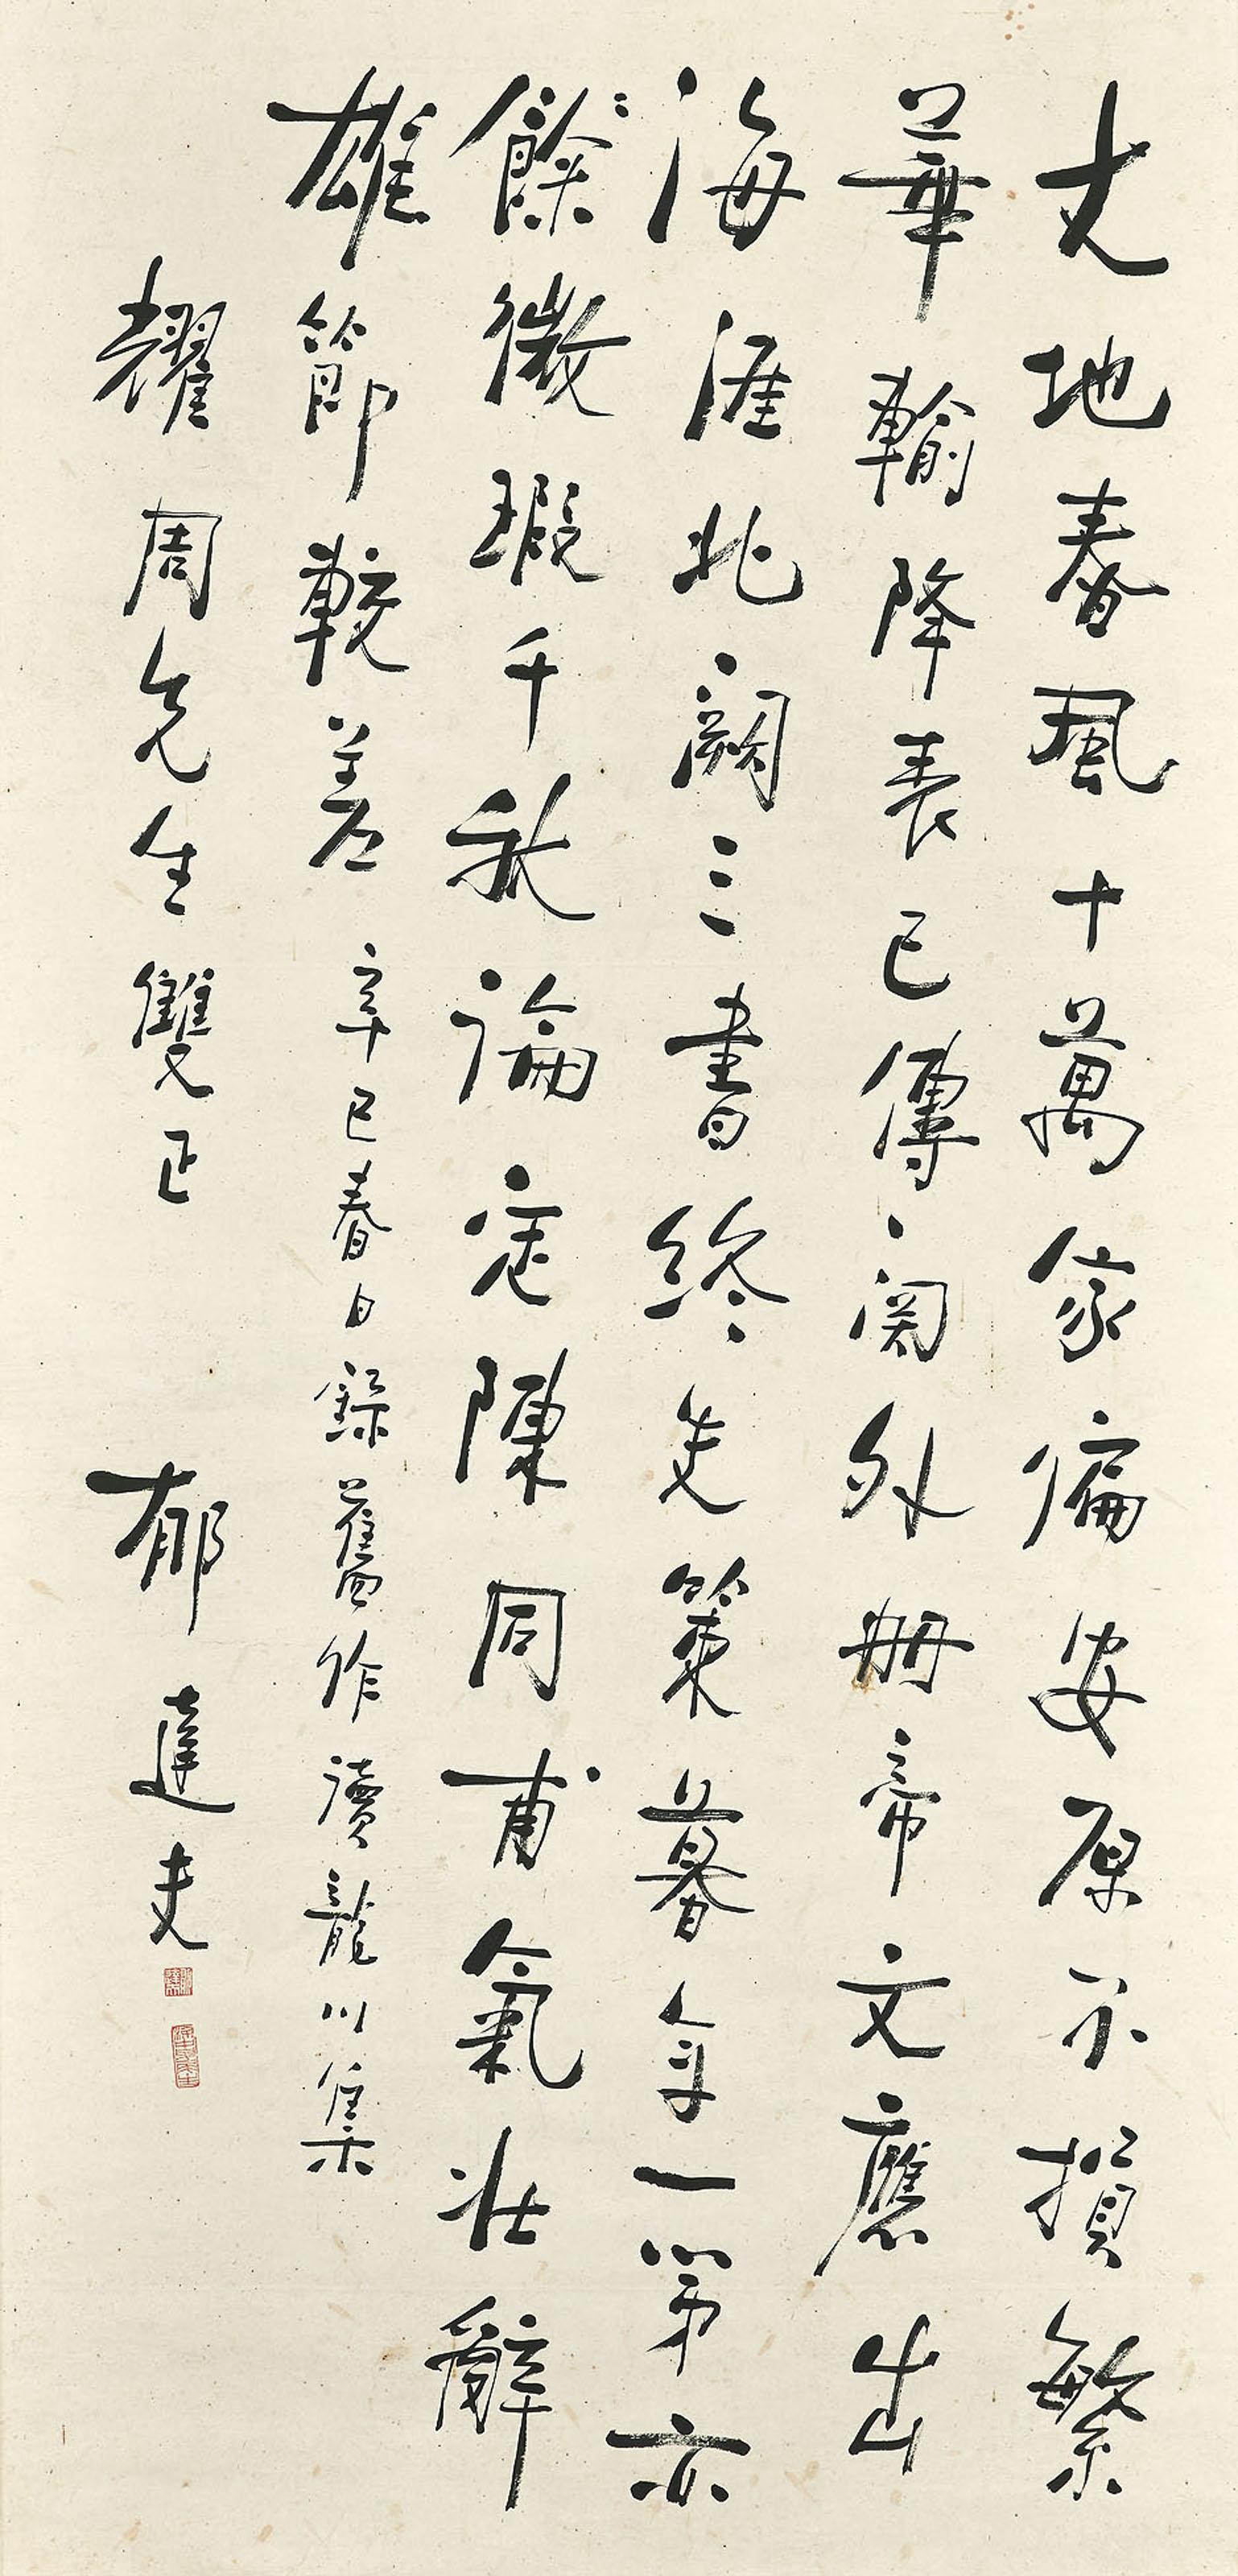 大地春風十萬家偏安原不損繁
華輸降表已傳関外册帝文應出
海涯北闕三書終失策暮年一第亦
餘微瑕千秋論定陳同甫氣壯辭
雄節較差 辛巳春日錄舊作讀龍川集
耀周先生雙正 郁達夫